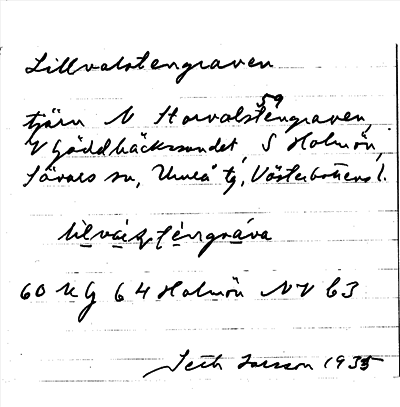 Lillvalstengraven
59
tjärn N Storvalstengraven,
V Gäddbäckssundet, S Holmön,
Sävars sn, Umeå tg, Västerbottens l.
60 KG 64 Holmön NV b3
Seth Larsson 1935